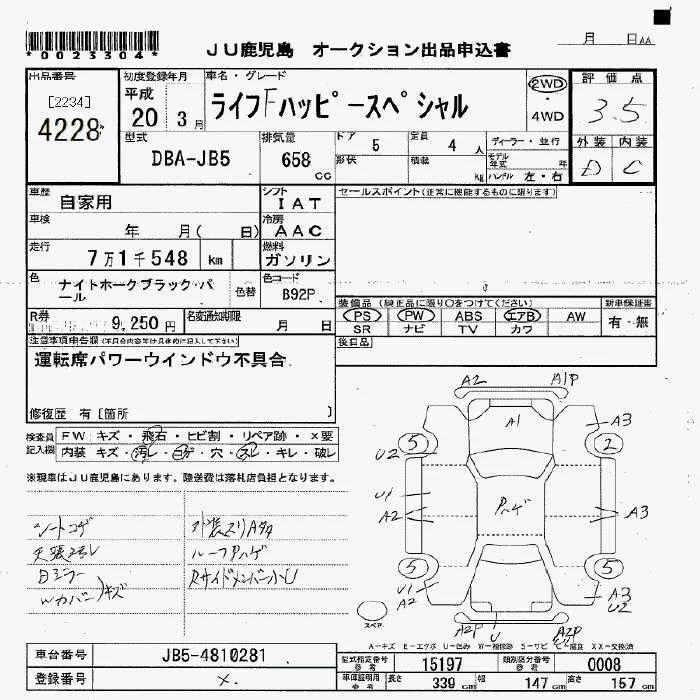 *00233304*
JU鹿児島 オークション出品申込書
月 日AA
出品番号 初度登録年月 車名・グレード 評価点
[2234]
4228
平成
20 3月
ライフFハッピースペシャル
2WD
・
4WD
3.5
外装 内装
D C
型式 排気量 ドア 定員 ディーラー・並行
DBA-JB5 658 CC 5 4 人
形状 積載 kg モデル年式 年
ハンドル 左・右
車歴 自家用
シフト IAT
セールスポイント(正常に機能するものに限ります)
車検 年 月( 日)
冷房 AAC
走行 7万1千548 km
燃料 ガソリン
色 ナイトホークブラック・パール
色替
色コード B92P
装備品(純正品に限り○をつけてください) 新車保証書
PS PW ABS エアB AW 有・無
SR ナビ TV カワ
R券 9,250円 名変通知期限 月 日
後日品
注意事項申告欄(不具合内容等は具体的に記入して下さい)
運転席パワーウインドウ不具合
修復歴 有[箇所 ]
検査員記入欄
FW:キズ・飛石・ヒビ割・リペア跡・×要
内装:キズ・汚レ・コゲ・穴・スレ・キレ・破レ
※現車はJU鹿児島にあります。陸送費は落札店負担となります。
シートコゲ
天張ヨゴレ
Bミラー
Wカバーノキズ
外装スリAタタ
ルーフPハゲ
RサイドメンバーハU
A2 A1P
A1 A3
5 2
U2
U1
A2 Pハゲ A3
5 5
U1
A2
A3
U2
A2P U A2P
スペア
A-キズ E-エクボ U-凹み W-補修跡 S-サビ C-腐食 XX-交換済
車台番号 JB5-4810281
型式指定番号 参考 15197 類別区分番号 参考 0008
登録番号 ×.
車庫証明用 参考 長さ 339 cm 幅 147 cm 高さ 157 cm